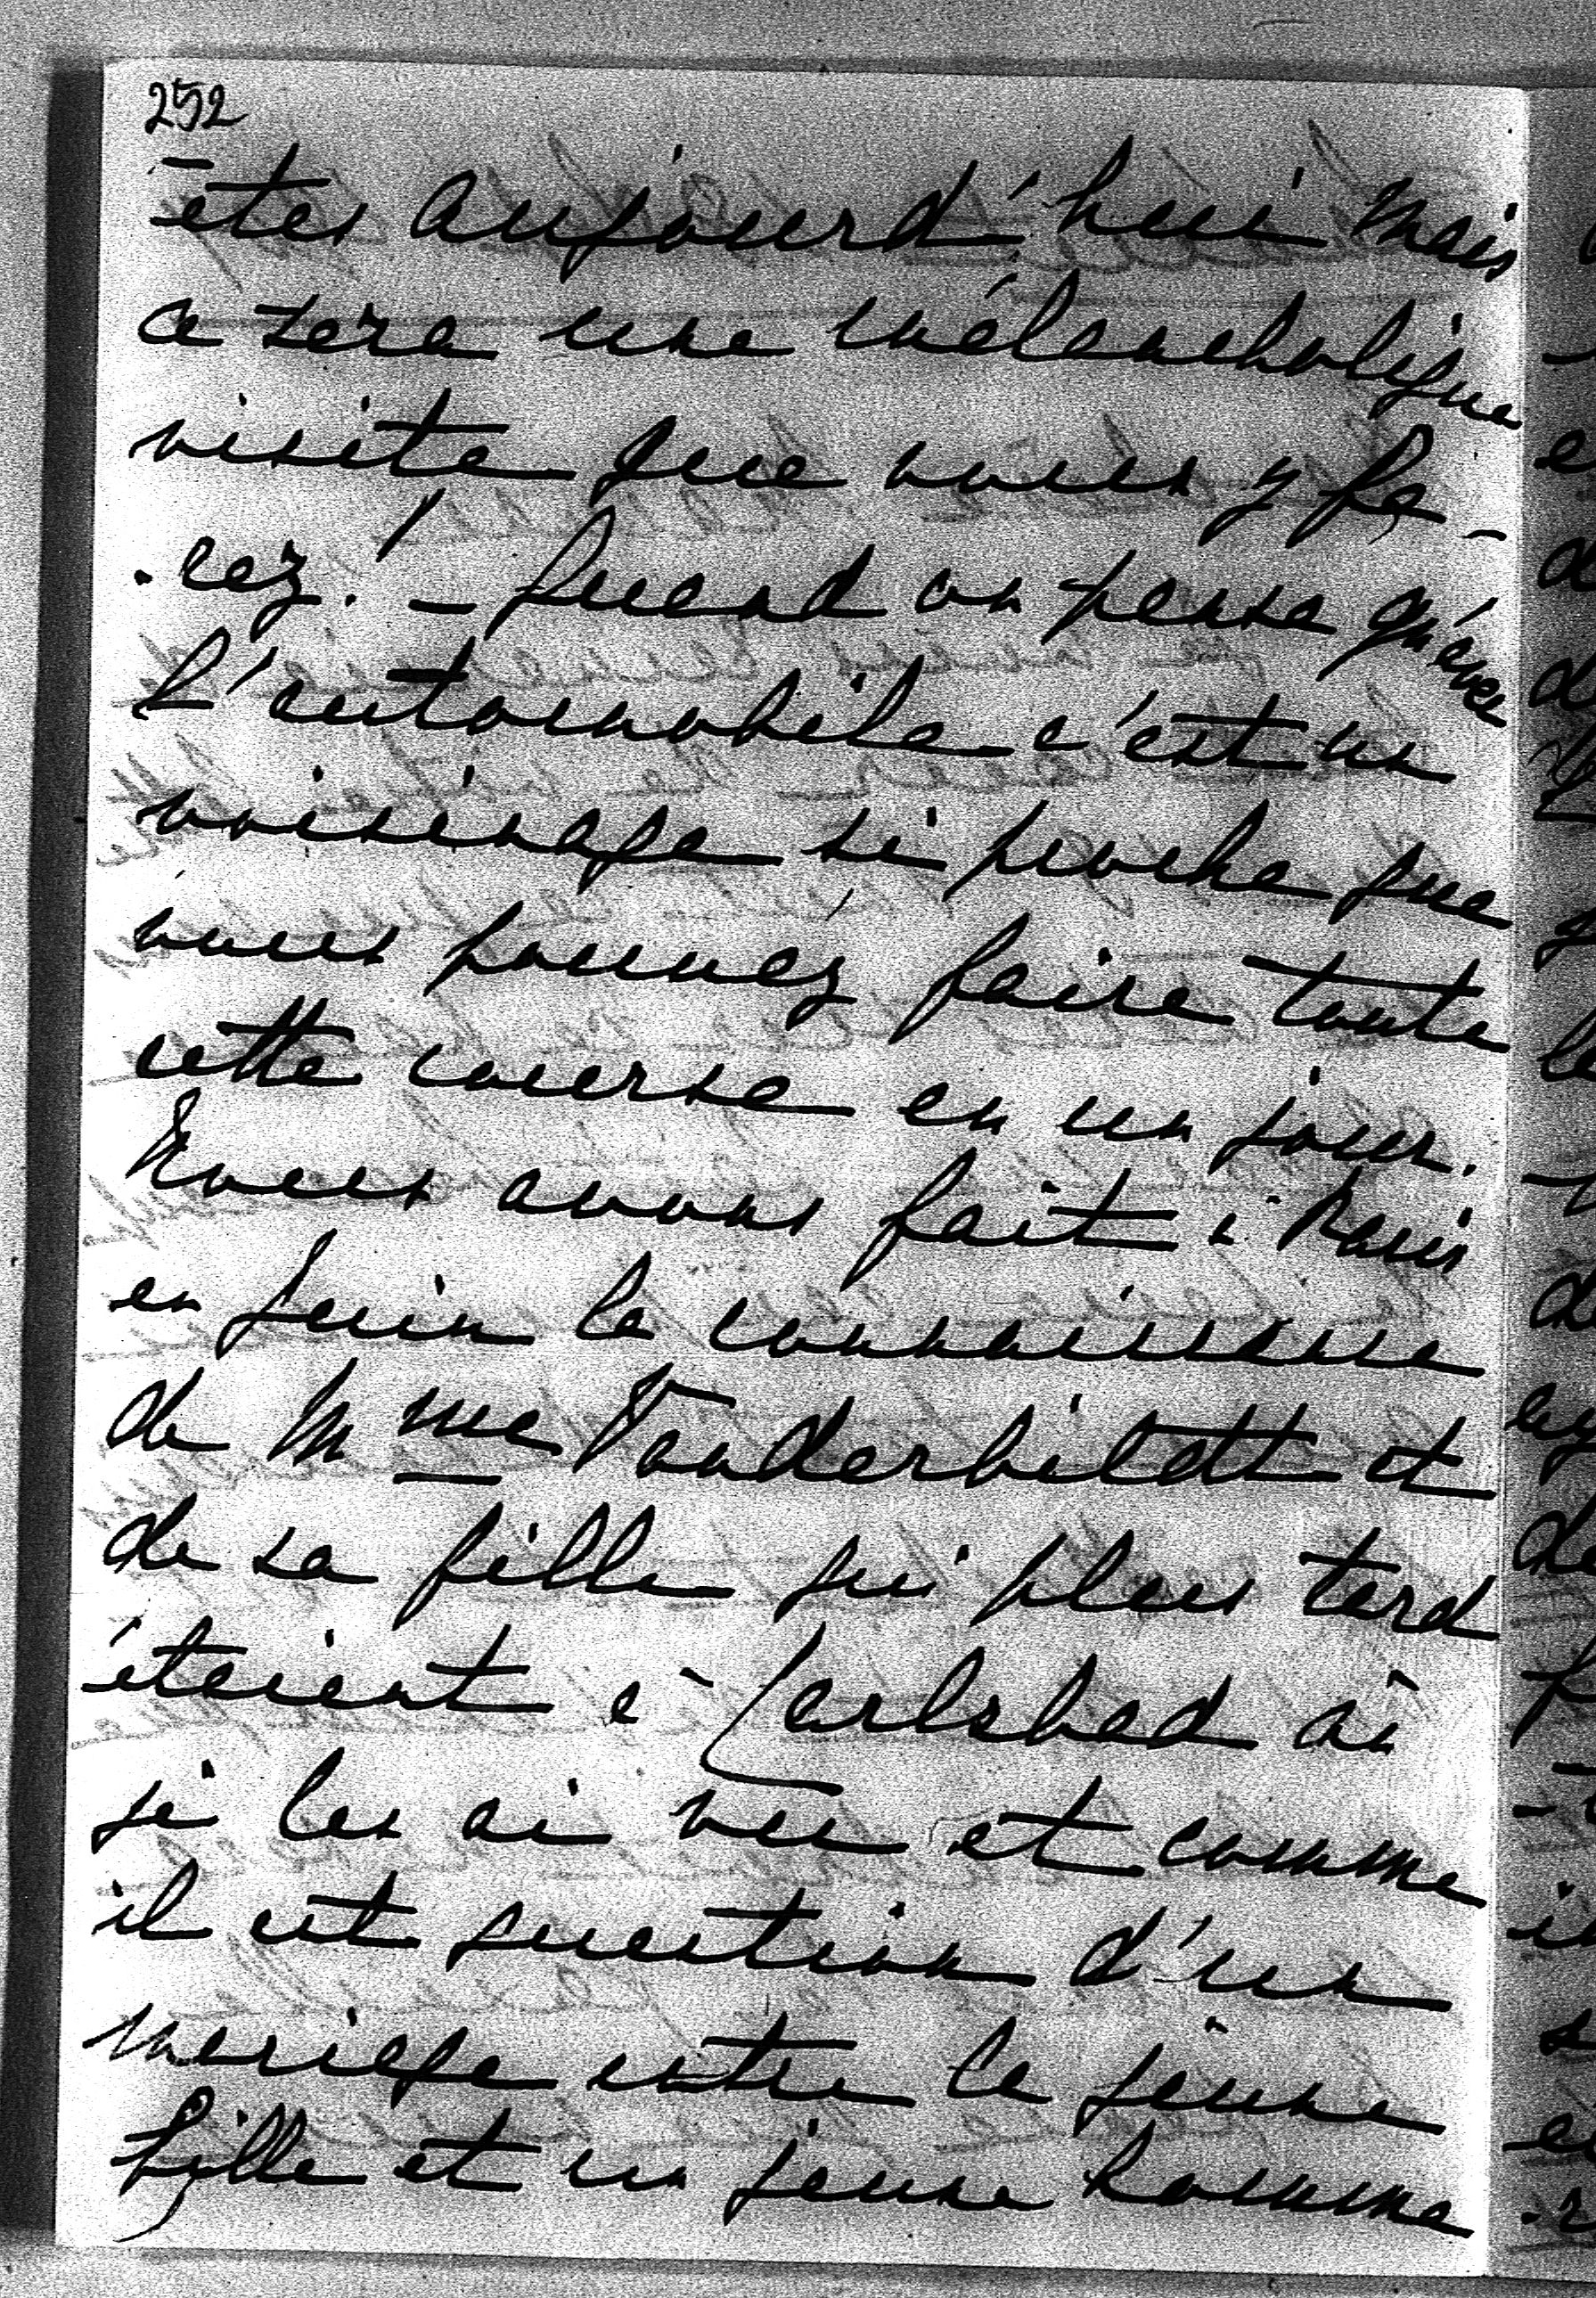 252
êtes aujourd'hui mais
ce sera une mélancholique
visite que vous y fe-
-rez! - Quand on pense qu'avec
l'automobile c'est un
voisinage si proche que
vous pouvez faire toute
cette course en un jour.
Nous avons fait à Paris
en Juin la connaissance
de Mme Vanderbildt et
de sa fille qui plus tard
étaient à Carlsbad où
je les ai vu et comme
il est question d'un
mariage entre la jeune
fille et un jeune homme